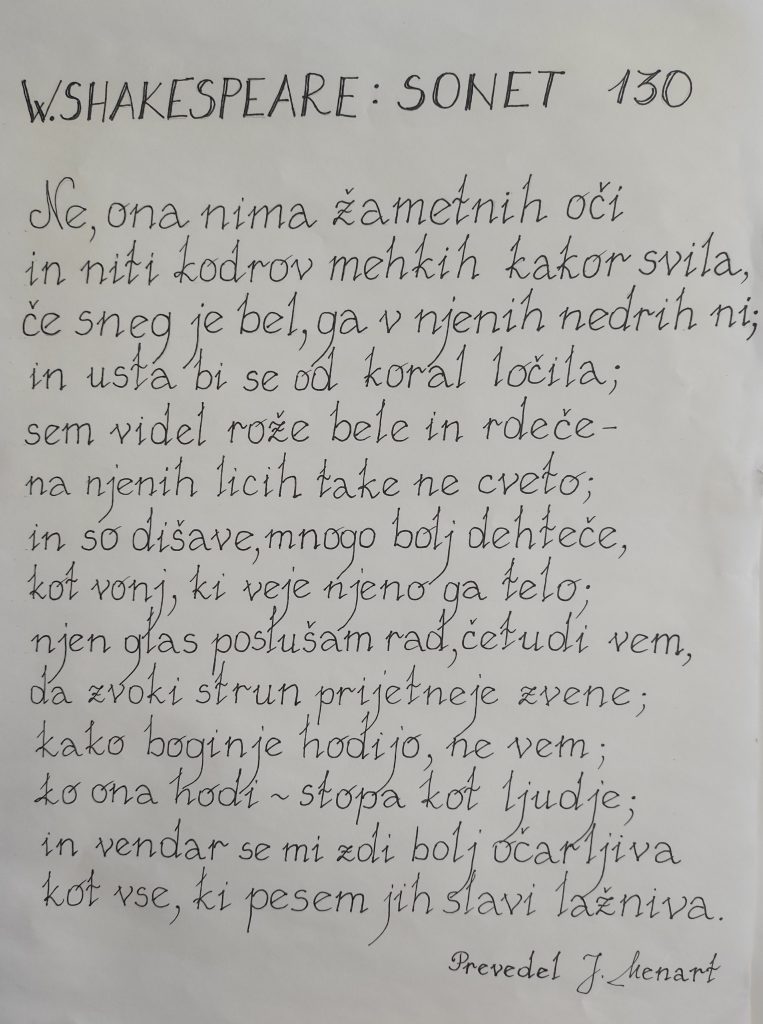 W. SHAKESPEARE: SONET 130
Ne, ona nima žametnih oči
in niti kodrov mehkih kakor svila,
če sneg je bel, ga v njenih nedrih ni;
in usta bi se od koral ločila;
sem videl rože bele in rdeče-
na njenih licih take ne cveto;
in so dišave, mnogo bolj dehteče,
kot vonj, ki veje njeno ga telo;
njen glas poslušam rad, četudi vem,
da zvoki strun prijetneje zvene;
kako boginje hodijo, ne vem;
ko ona hodi ~ stopa kot ljudje;
in vendar se mi zdi bolj očarljiva
kot vse, ki pesem jih slavi lažniva.
Prevedel J. Menart